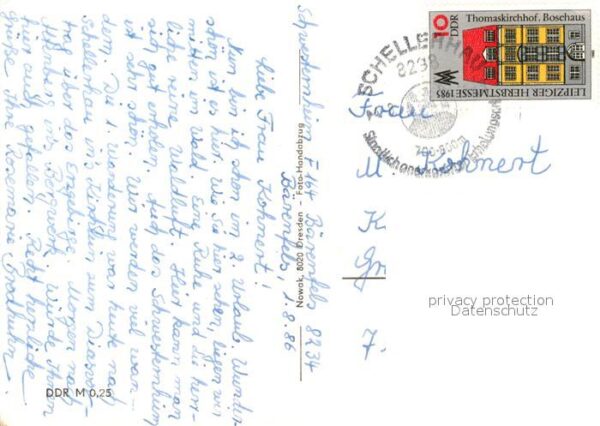 Schwesternheim F 164 Bärenfels 8234
Bärenfels, 1.8.86
Liebe Frau Kohnert!
Nun bin ich schon im 2. Urlaub. Wunder-
schön ist es hier. Wie Sie hier sehen, liegen wir
mitten im Wald. Eine Ruhe und ein herr-
liche reine Waldluft. Hier kann man
sich gut erholen. Auch das Schwesternheim
ist sehr schön. Wir werden viel wan-
dern. Die 1. Wanderung war heute nach
Schellerhau ins Kirchlein zum Diavor-
trag über das Erzgebirge. Morgen nach
Altenberg ins Bergwerk. Würde Ihnen
hier auch gefallen. Recht herzliche
Grüße Ihre Rosemarie
DDR M 0,25
Nowak, 8020 Dresden - Foto-Handabzug
SCHELLERHAU
8238
700-800 m
Staatlich anerkannter Erholungsort
10 DDR
Thomaskirchhof, Bosehaus
LEIPZIGER HERBSTMESSE 1985
Frau
M. Kohnert
K
Gr
7.
privacy protection
Datenschutz